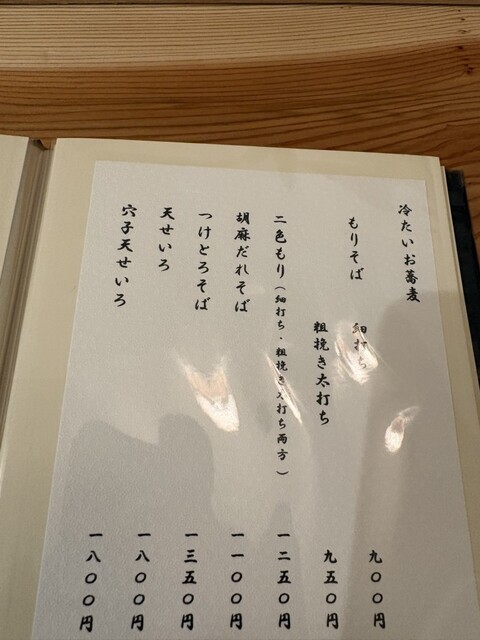 冷たいお蕎麦
もりそば 細打ち 九〇〇円
粗挽き太打ち 九五〇円
二色もり(細打ち・粗挽き太打ち両方) 一二五〇円
胡麻だれそば 一一〇〇円
つけとろそば 一三五〇円
天せいろ 一八〇〇円
穴子天せいろ 一八〇〇円